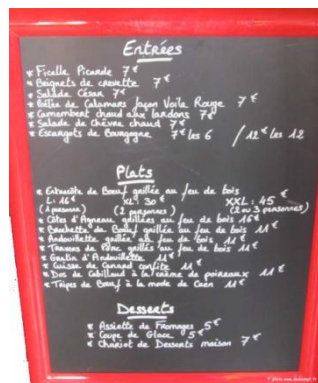 Entrées
* Ficelle Picarde 7€
* Beignets de crevette 7€
* Salade César 7€
* de Calamars façon Voile Rouge 7€
* Camembert chaud aux lardons 7€
* Salade de Chèvre chaud 7€
* Escargots de Bourgogne 7€ les 6 / 12€ les 12
Plats
* Entrecôte de Boeuf grillée au feu de bois
L: 16€ XL: 30€ XXL: 45€
(1 personne) (2 personnes) (2 ou 3 personnes)
* Côtes d'Agneau grillées au feu de bois 16€
* Brochette de Boeuf grillée au feu de bois 11€
* Andouillette grillée au feu de bois 11€
* Travers de Porc grillés au feu de bois 11€
* Gratin d'Andouillette 11€
* Cuisse de Canard confite 11€
* Dos de Cabillaud à la crème de poireaux 11€
* Tripes de Boeuf à la mode de Caen 11€
Desserts
* Assiette de Fromages 5€
* Coupe de Glace 5€
* Chariot de Desserts maison 7€